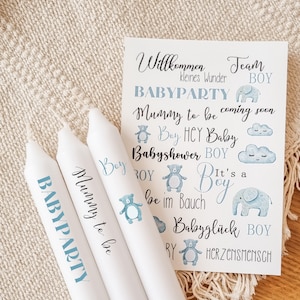 BABYPARTY
Mummy to be
Boy
Willkommen Team
kleines Wunder BOY
BABYPARTY
Mummy to be coming soon
Boy HEY Baby
Babyshower BOY
It's a
Boy
be im Bauch
Babyglück BOY
BY HERZENSMENSCH